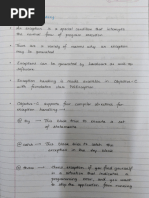 An exception is a special condition that interrupts
the normal flow of program execution.
There are a variety of reasons why an exception
may be generated.
Exceptions can be generated by hardware as well as
software.
Exception handling is made available in Objective-C
with foundation class NSException
Objective-C supports four compiler directives for
exception handling
① @ try → This block tries to execute a set
of statements.
② @ catch → This block tries to catch the
exception in the try block
③ @ throw → throw exception, if you find yourself
in a situation that indicates a
programming error, and you want
to stop the application from running.